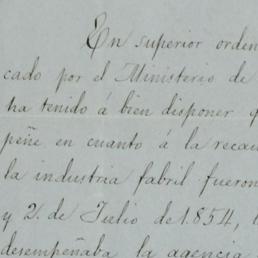 En superior orden
cado por el Ministerio de
ha tenido á bien disponer q
peñe en cuanto á la recau
la industria fabril fueron
y 2. de Julio de 1.854,
desempeñaba la agencia